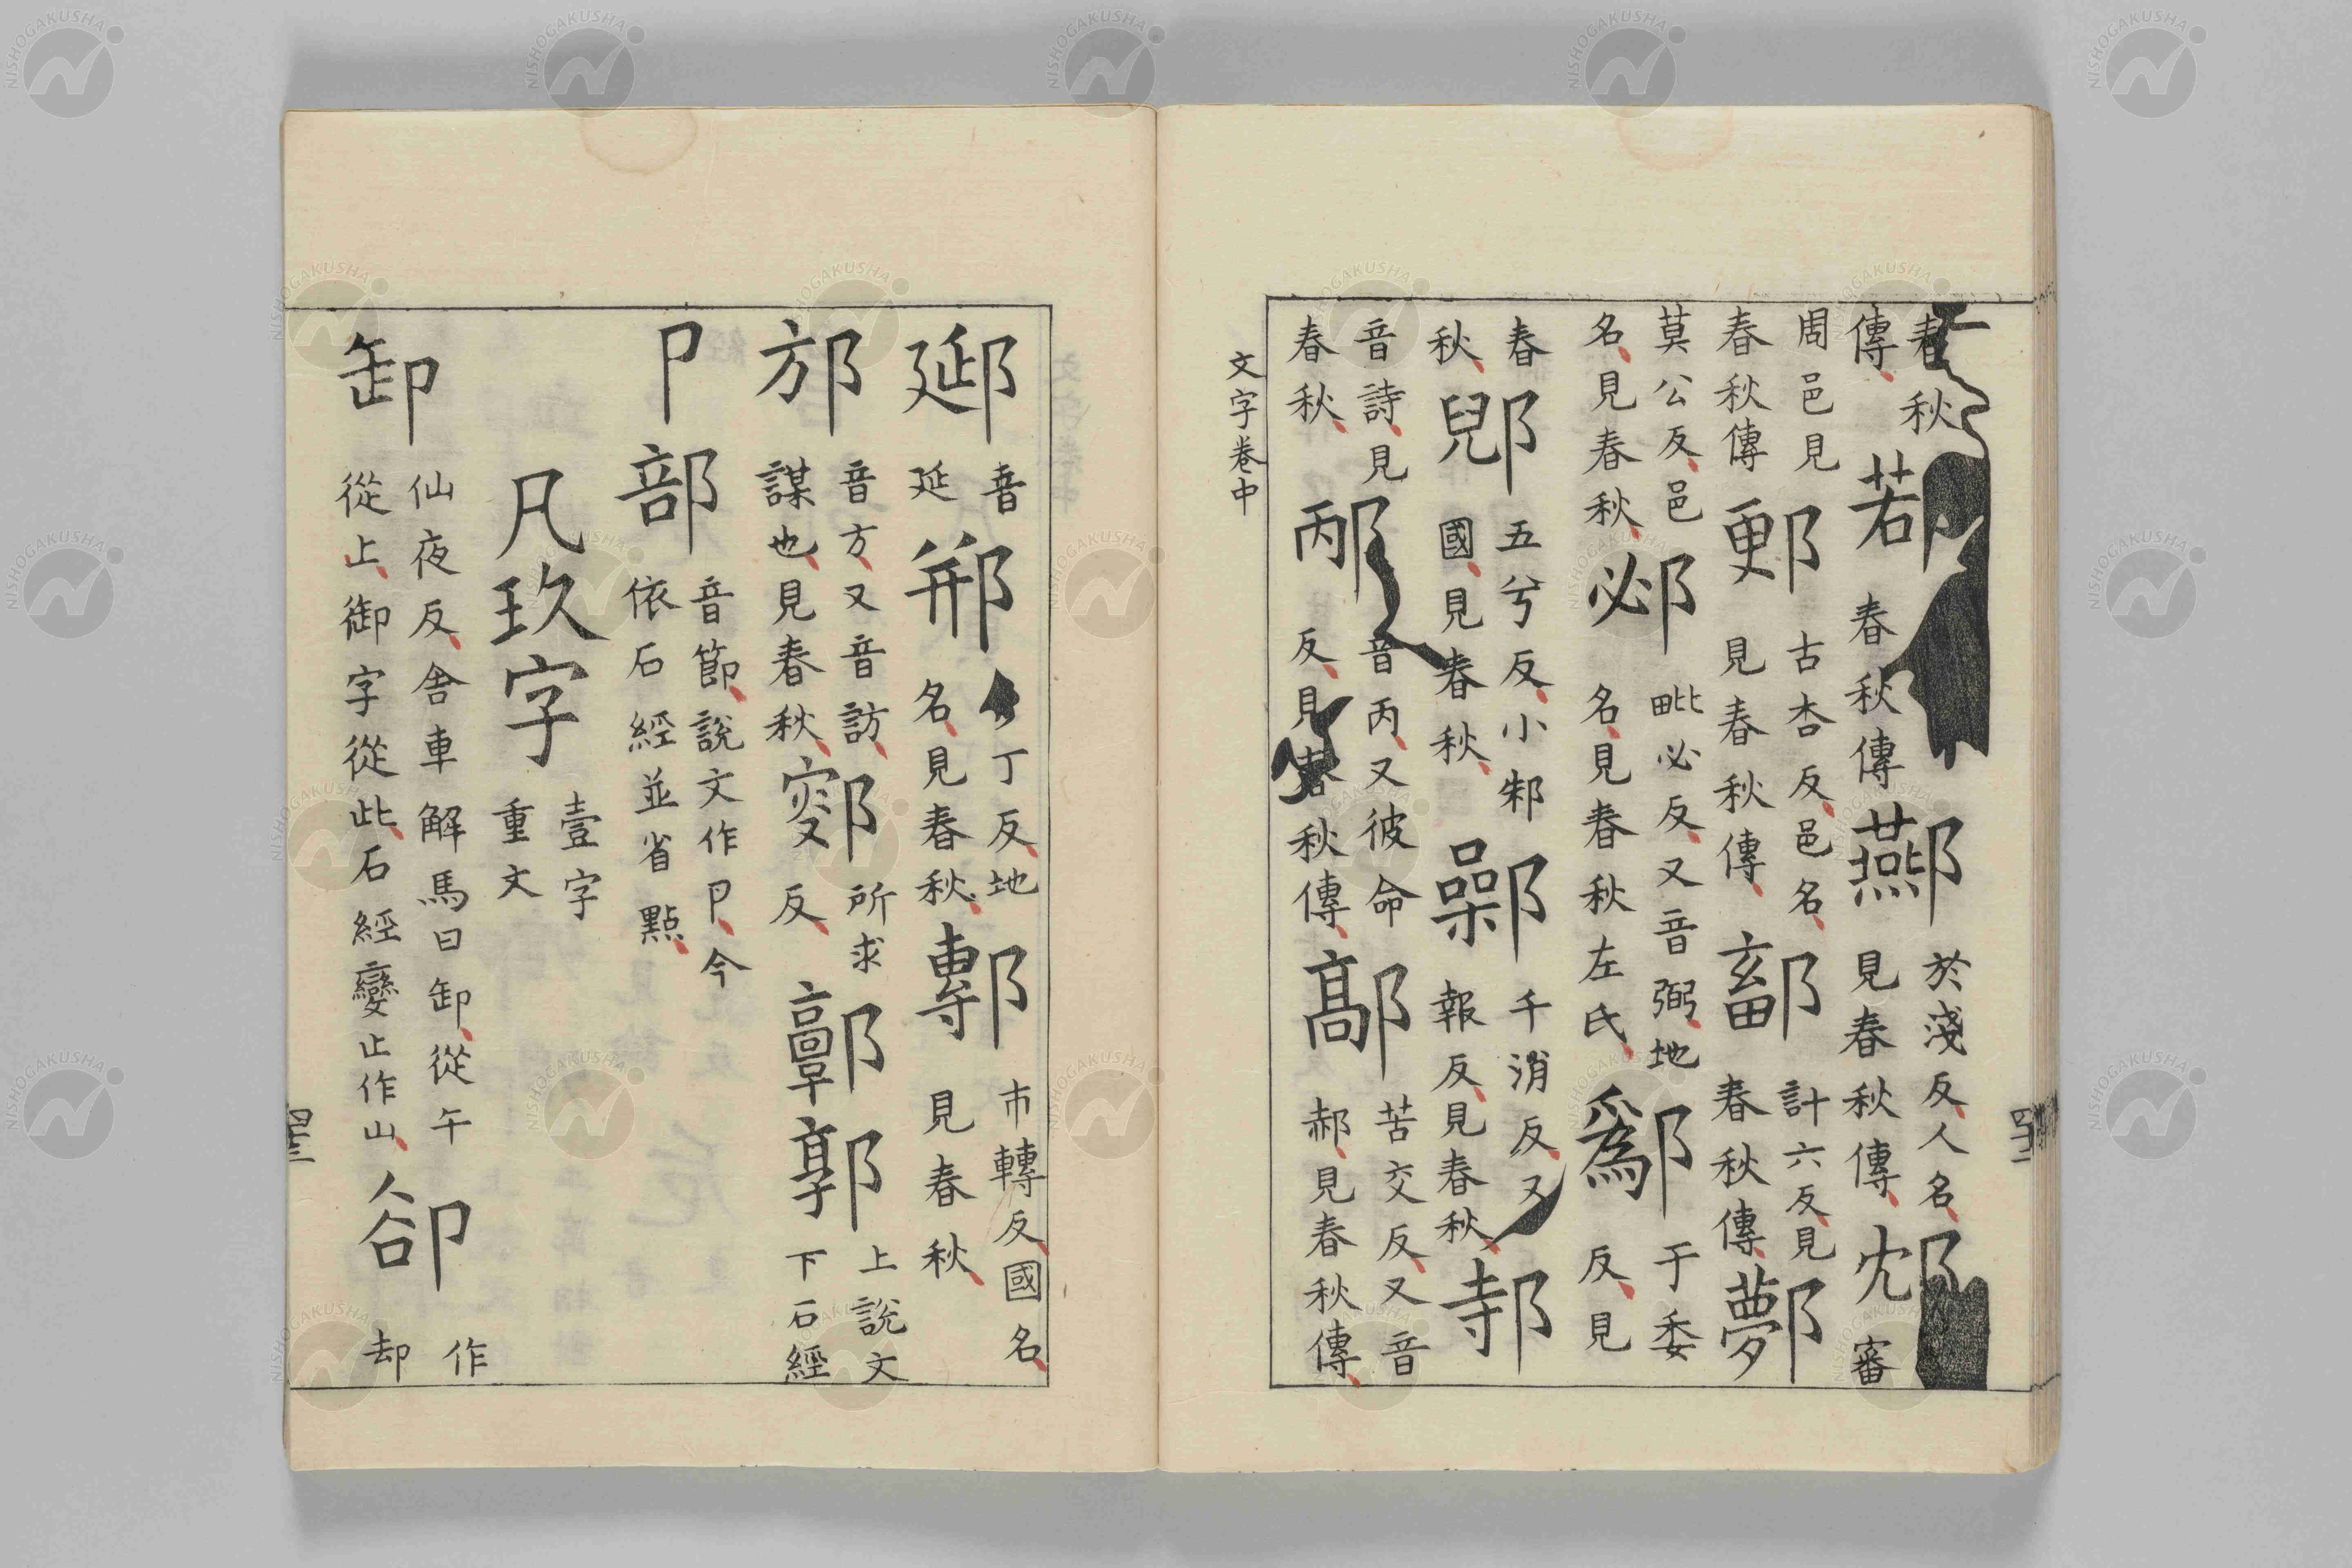 春秋傳鄀春秋傳酀於淺反人名見春秋傳邥審
周邑見春秋傳郠古杏反邑名見春秋傳鄐計六反見春秋傳鄸
莫公反邑名見春秋邲毗必反又音弼地名見春秋左氏鄬于委反見
春秋郳五兮反小邾國見春秋鄵千消反又報反見春秋邿
音詩見春秋邴音丙又彼命反見春秋傳鄗苦交反又音郝見春秋傳
文字卷中
郔音延郱丁反地名見春秋鄟市轉反國名見春秋
邡音方又音訪謀也見春秋鄋所求反郭上說文下石經
卩部音節說文作卪今依石經並省點
凡玖字壹字重文
卸仙夜反舍車解馬曰卸從午從上御字從此石經變止作山卻作却
NISHOGAKUSHA